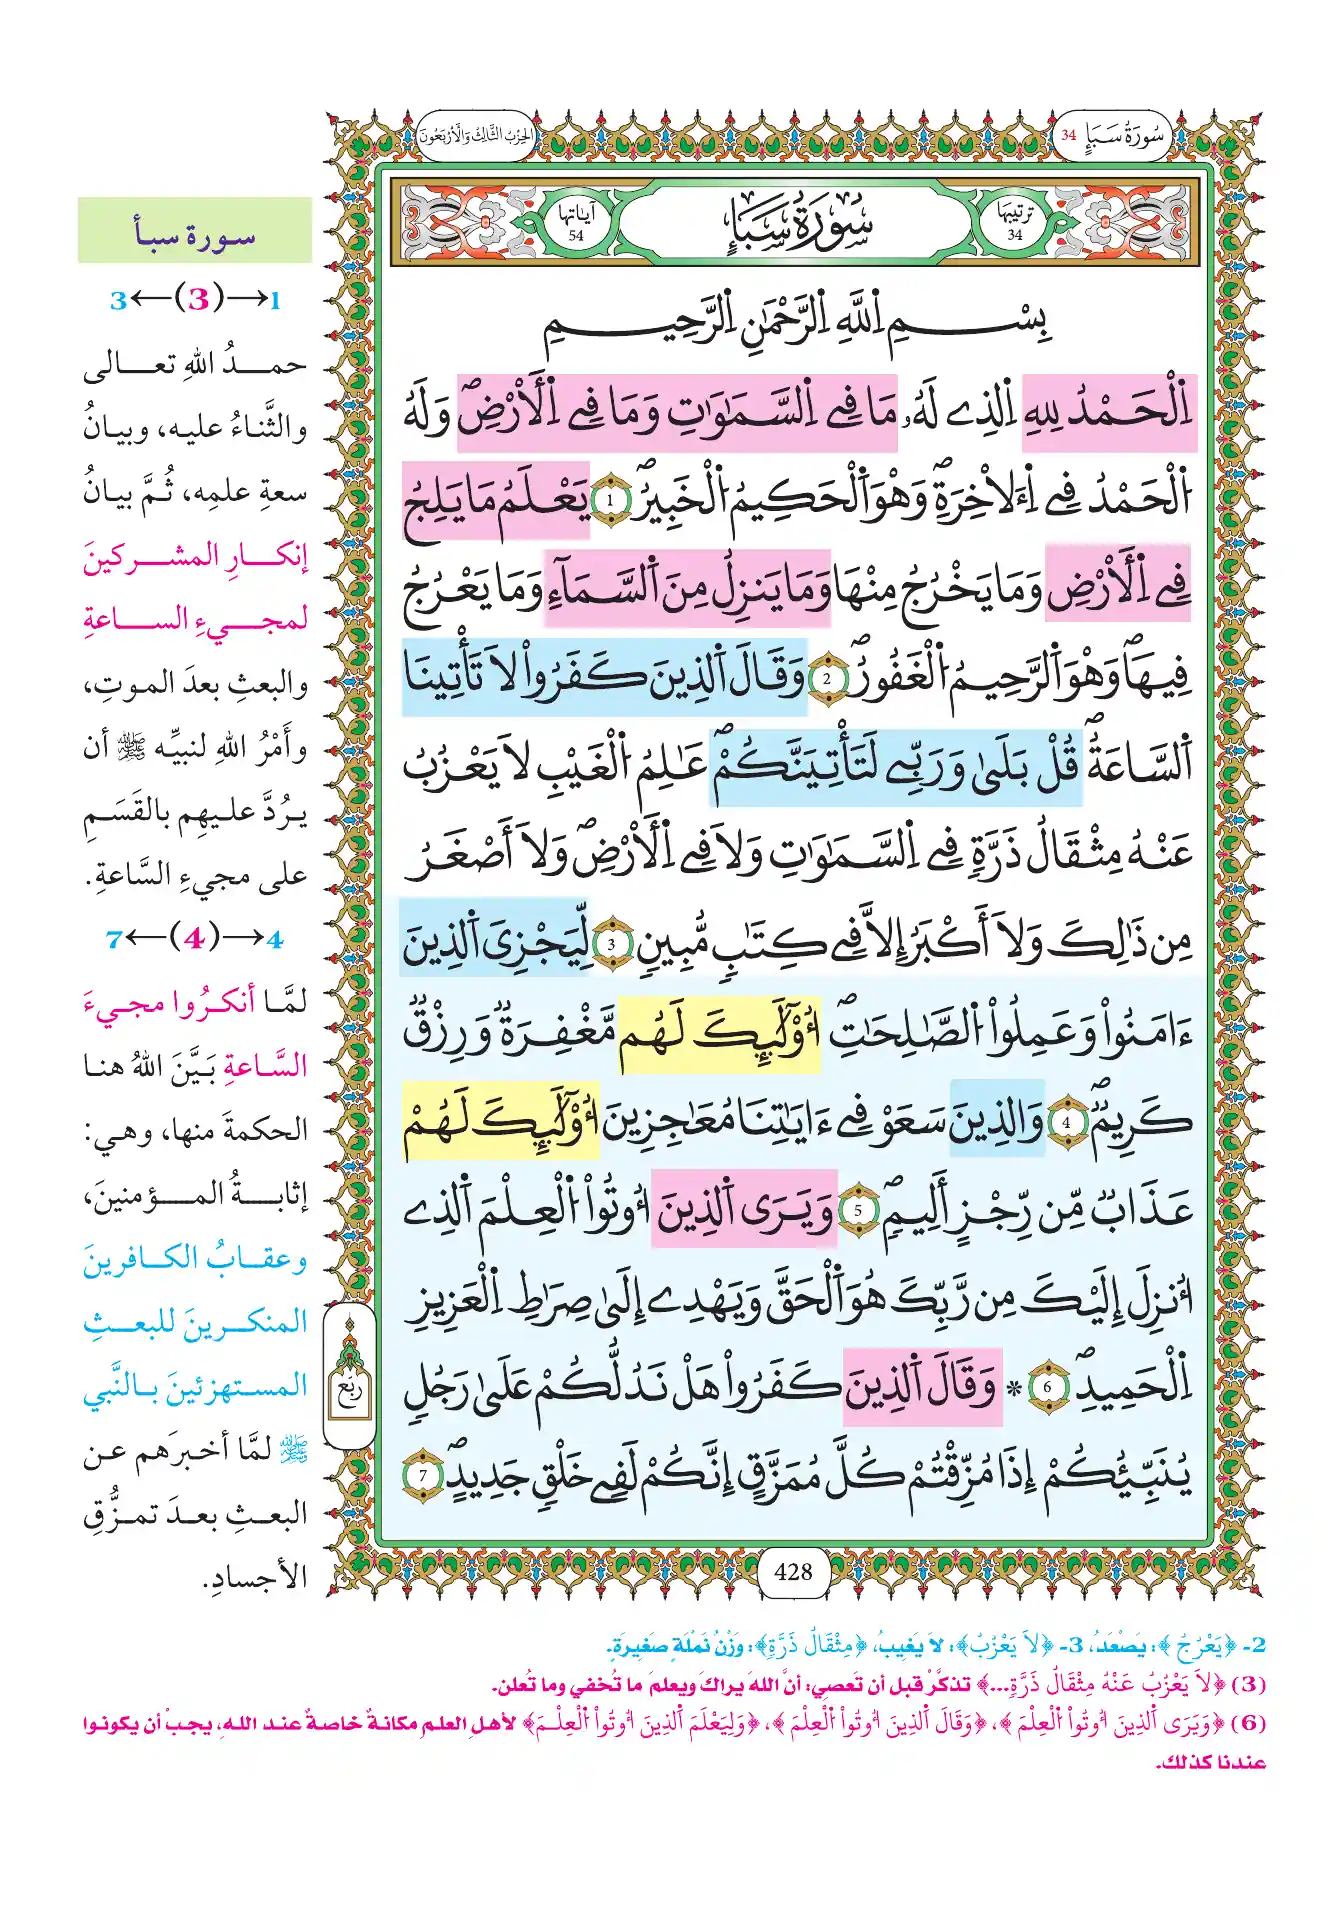 سُورَةُ سَبَإٍ 34
الحِزْبُ الثَّالِثُ وَالأَرْبَعُونَ
ترتيبها
34
سُورَةُ سَبَإٍ
آياتها
54
بِسْمِ اِللَّهِ اِلرَّحْمَٰنِ اِلرَّحِيمِ
اِلْحَمْدُ لِلهِ اِلذِے لَهُۥ مَا فِے اِلسَّمَٰوَٰتِ وَمَا فِے اِلَارْضِۖ وَلَهُ
اُلْحَمْدُ فِے اِءَلَاخِرَةِۖ وَهْوَ اَلْحَكِيمُ اُلْخَبِيرُۖ 1 يَعْلَمُ مَا يَلِجُ
فِے اِلَارْضِ وَمَا يَخْرُجُ مِنْهَا وَمَا يَنزِلُ مِنَ اَلسَّمَآءِ وَمَا يَعْرُجُ
فِيهَاۖ وَهْوَ اَلرَّحِيمُ اُلْغَفُورُۖ 2 وَقَالَ اَلذِينَ كَفَرُواْ لَا تَأْتِينَا
اَلسَّاعَةُۖ قُلْ بَلَىٰ وَرَبِّے لَتَأْتِيَنَّكُمْۖ عَٰلِمُ اُلْغَيْبِ لَا يَعْزُبُ
عَنْهُ مِثْقَالُ ذَرَّةٖ فِے اِلسَّمَٰوَٰتِ وَلَا فِے اِلَارْضِۖ وَلَا أَصْغَرُ
مِن ذَٰلِكَ وَلَا أَكْبَرُ إِلَّا فِے كِتَٰبٖ مُّبِينٖ 3 لِّيَجْزِيَ اَلذِينَ
ءَامَنُواْ وَعَمِلُواْ اُلصَّٰلِحَٰتِۖ أُوْلَٰٓئِكَ لَهُم مَّغْفِرَةٞ وَرِزْقٞ
كَرِيمٞۖ 4 وَالذِينَ سَعَوْ فِے ءَايَٰتِنَا مُعَٰجِزِينَ أُوْلَٰٓئِكَ لَهُمْ
عَذَابٞ مِّن رِّجْزٍ أَلِيمٖۖ 5 وَيَرَى اَلذِينَ أُوتُواْ اُلْعِلْمَ اَلذِے
أُنزِلَ إِلَيْكَ مِن رَّبِّكَ هُوَ اَلْحَقَّ وَيَهْدِے إِلَىٰ صِرَٰطِ اِلْعَزِيزِ
اِلْحَمِيدِۖ 6 * وَقَالَ اَلذِينَ كَفَرُواْ هَلْ نَدُلُّكُمْ عَلَىٰ رَجُلٖ
يُنَبِّئُكُمْ إِذَا مُزِّقْتُمْ كُلَّ مُمَزَّقٍ إِنَّكُمْ لَفِے خَلْقٖ جَدِيدٍۖ 7
رُبُع
428
سورة سبأ
1→(3)←3
حمدُ اللهِ تعالى
والثَّناءُ عليه، وبيانُ
سعةِ علمِه، ثُمَّ بيانُ
إنكارِ المشركينَ
لمجيءِ الساعةِ
والبعثِ بعدَ الموتِ،
وأَمْرُ اللهِ لنبيِّه ﷺ أن
يردَّ عليهِم بالقَسَمِ
على مجيءِ السَّاعةِ.
4→(4)←7
لمَّا أنكرُوا مجيءَ
السَّاعةِ بَيَّنَ اللهُ هنا
الحكمةَ منها، وهي:
إثابةُ المؤمنينَ،
وعقابُ الكافرينَ
المنكرينَ للبعثِ
المستهزئينَ بالنَّبي
ﷺ لمَّا أخبرَهم عن
البعثِ بعدَ تمزُّقِ
الأجسادِ.
2- ﴿يَعْرُجُ﴾: يَصْعَدُ، 3- ﴿لَا يَعْزُبُ﴾: لَا يَغِيبُ، ﴿مِثْقَالُ ذَرَّةٖ﴾: وَزْنُ نَمْلَةٍ صَغِيرَةٍ.
(3) ﴿لَا يَعْزُبُ عَنْهُ مِثْقَالُ ذَرَّةٖ...﴾ تذكَّرْ قبل أن تَعصي: أنَّ اللهَ يراكَ ويعلمَ ما تُخفي وما تُعلن.
(6) ﴿وَيَرَى اَلذِينَ أُوتُواْ اُلْعِلْمَ﴾، ﴿وَقَالَ اَلذِينَ أُوتُواْ اُلْعِلْمَ﴾، ﴿وَلِيَعْلَمَ اَلذِينَ أُوتُواْ اُلْعِلْمَ﴾ لأهلِ العلمِ مكانةٌ خاصةٌ عند اللهِ، يجبْ أن يكونوا
عندنا كذلك.